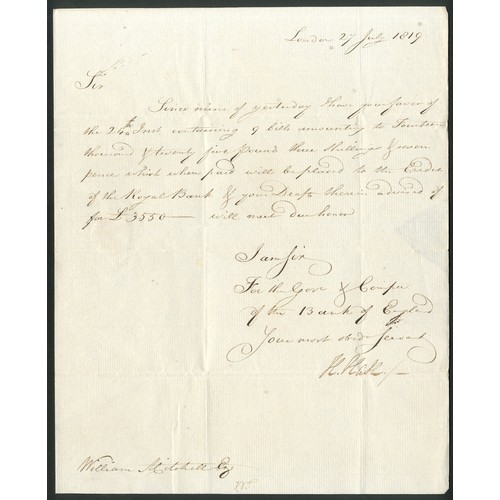 London 27 July 1819
Sir
Since mine of yesterday I have your favor of
the 24th Inst containing 9 bills amounting to Fourteen
thousand & twenty five pound three shillings & seven
pence which when paid will be placed to the Credit
of the Royal Bank & your Drafts therein advised of
for £3550 — will meet due honor
I am Sir
For the Govr & Compa
of the Bank of England
Your most obedt Servant
William Mitchell Esq